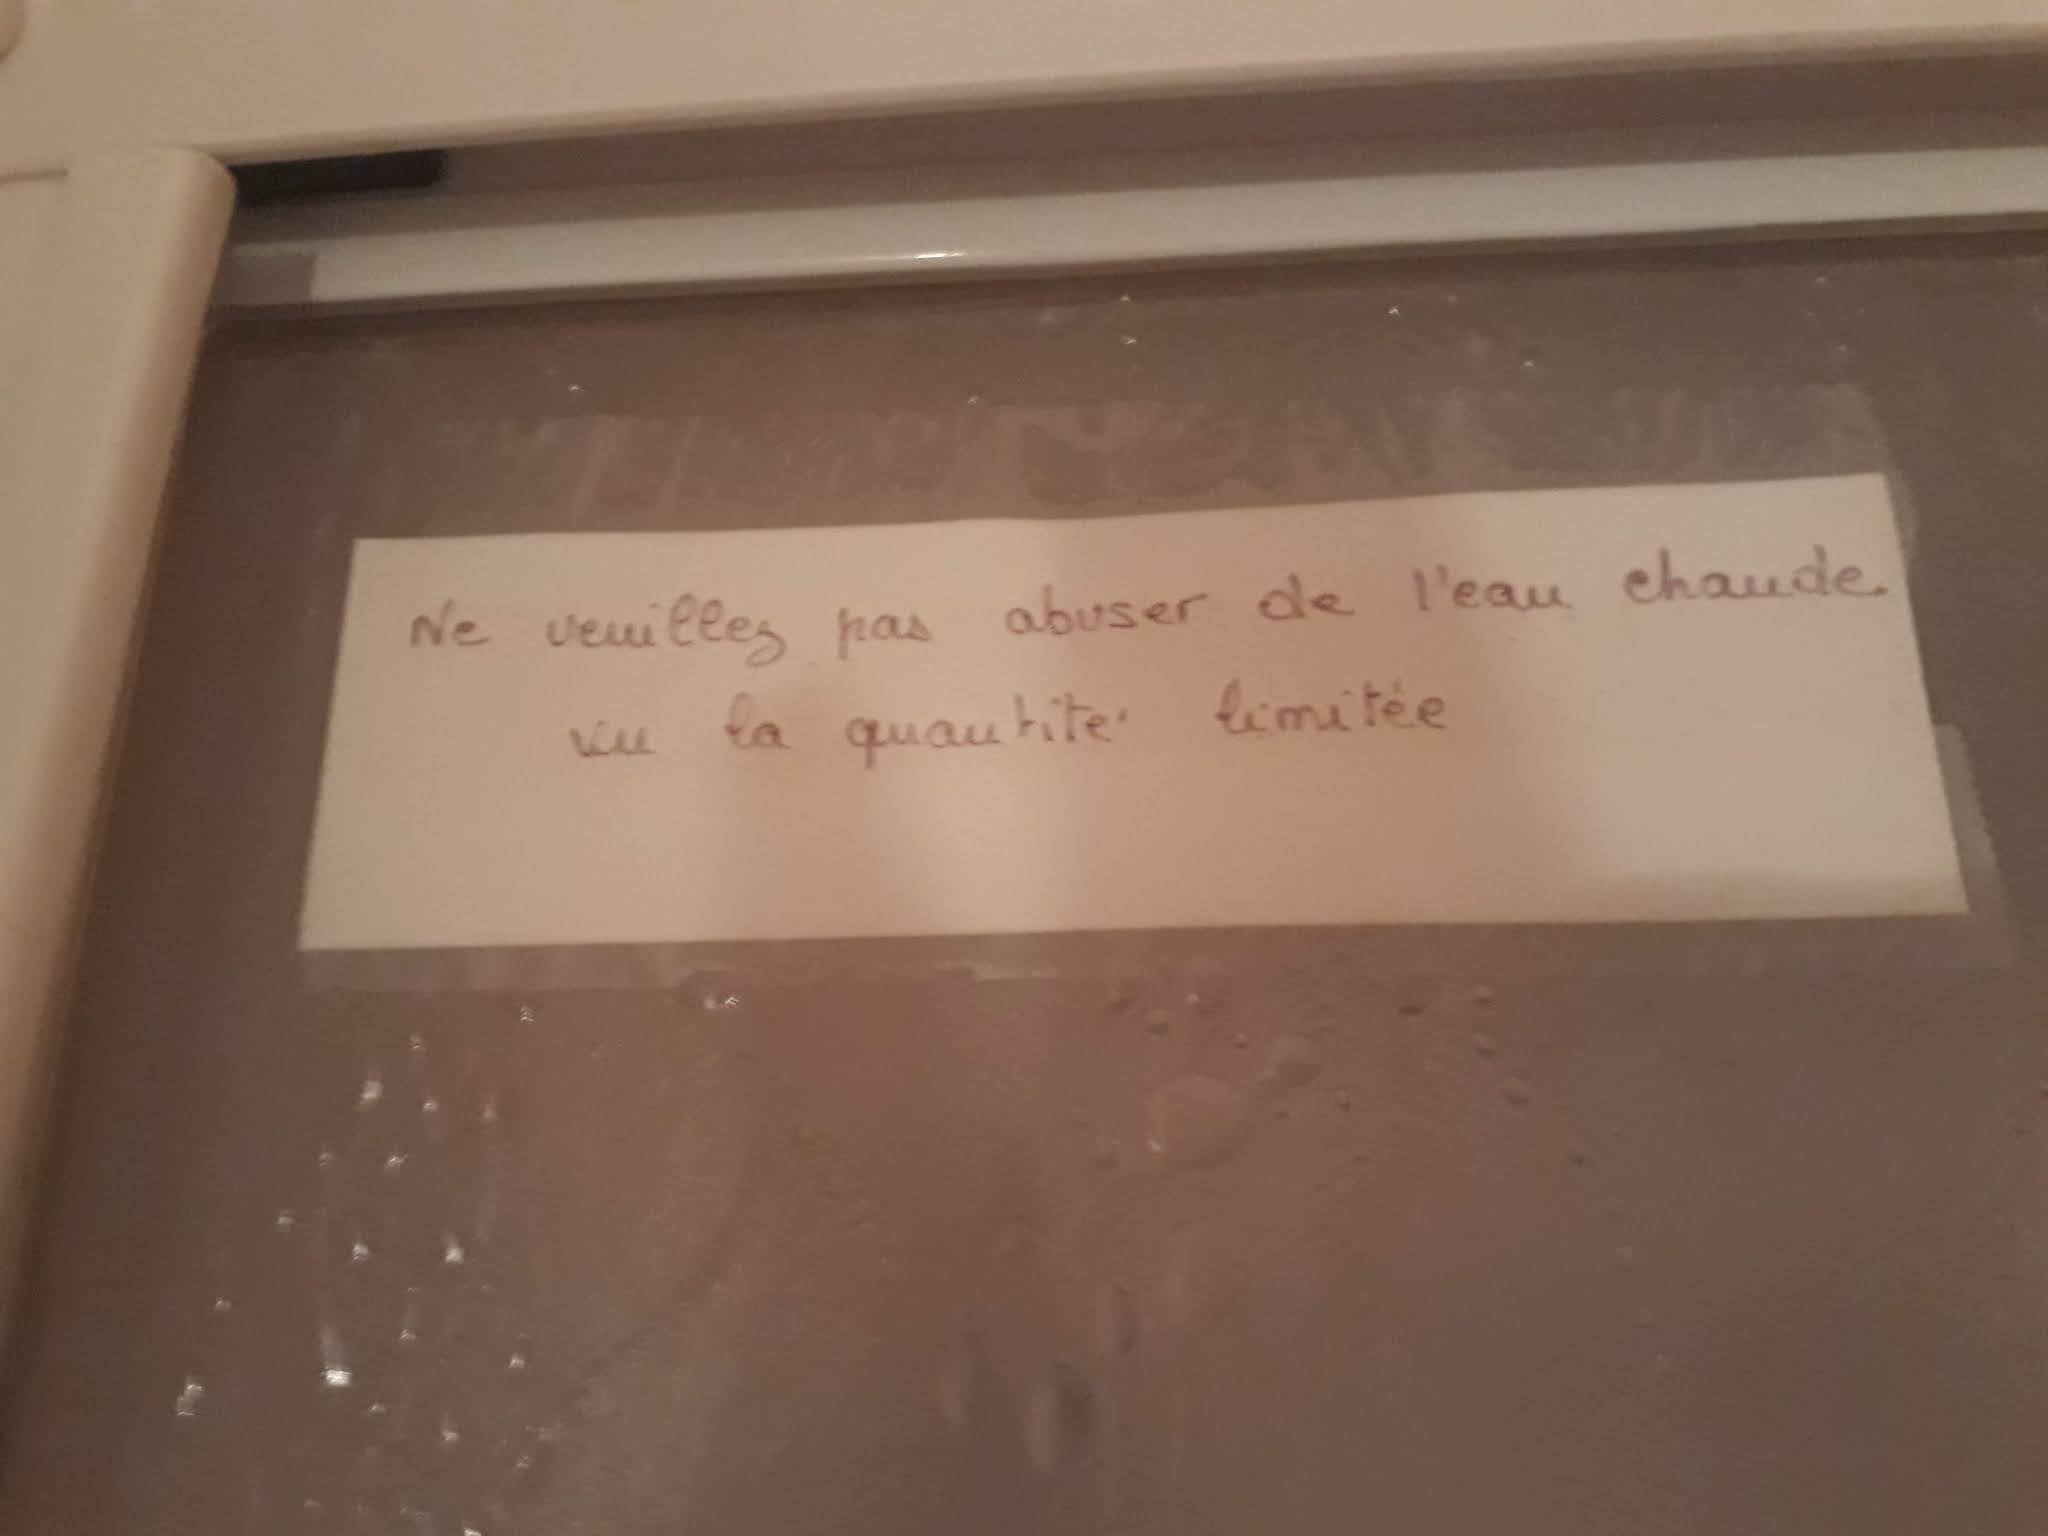 Ne veuillez pas abuser de l'eau chaude.
vu la quantité limitée